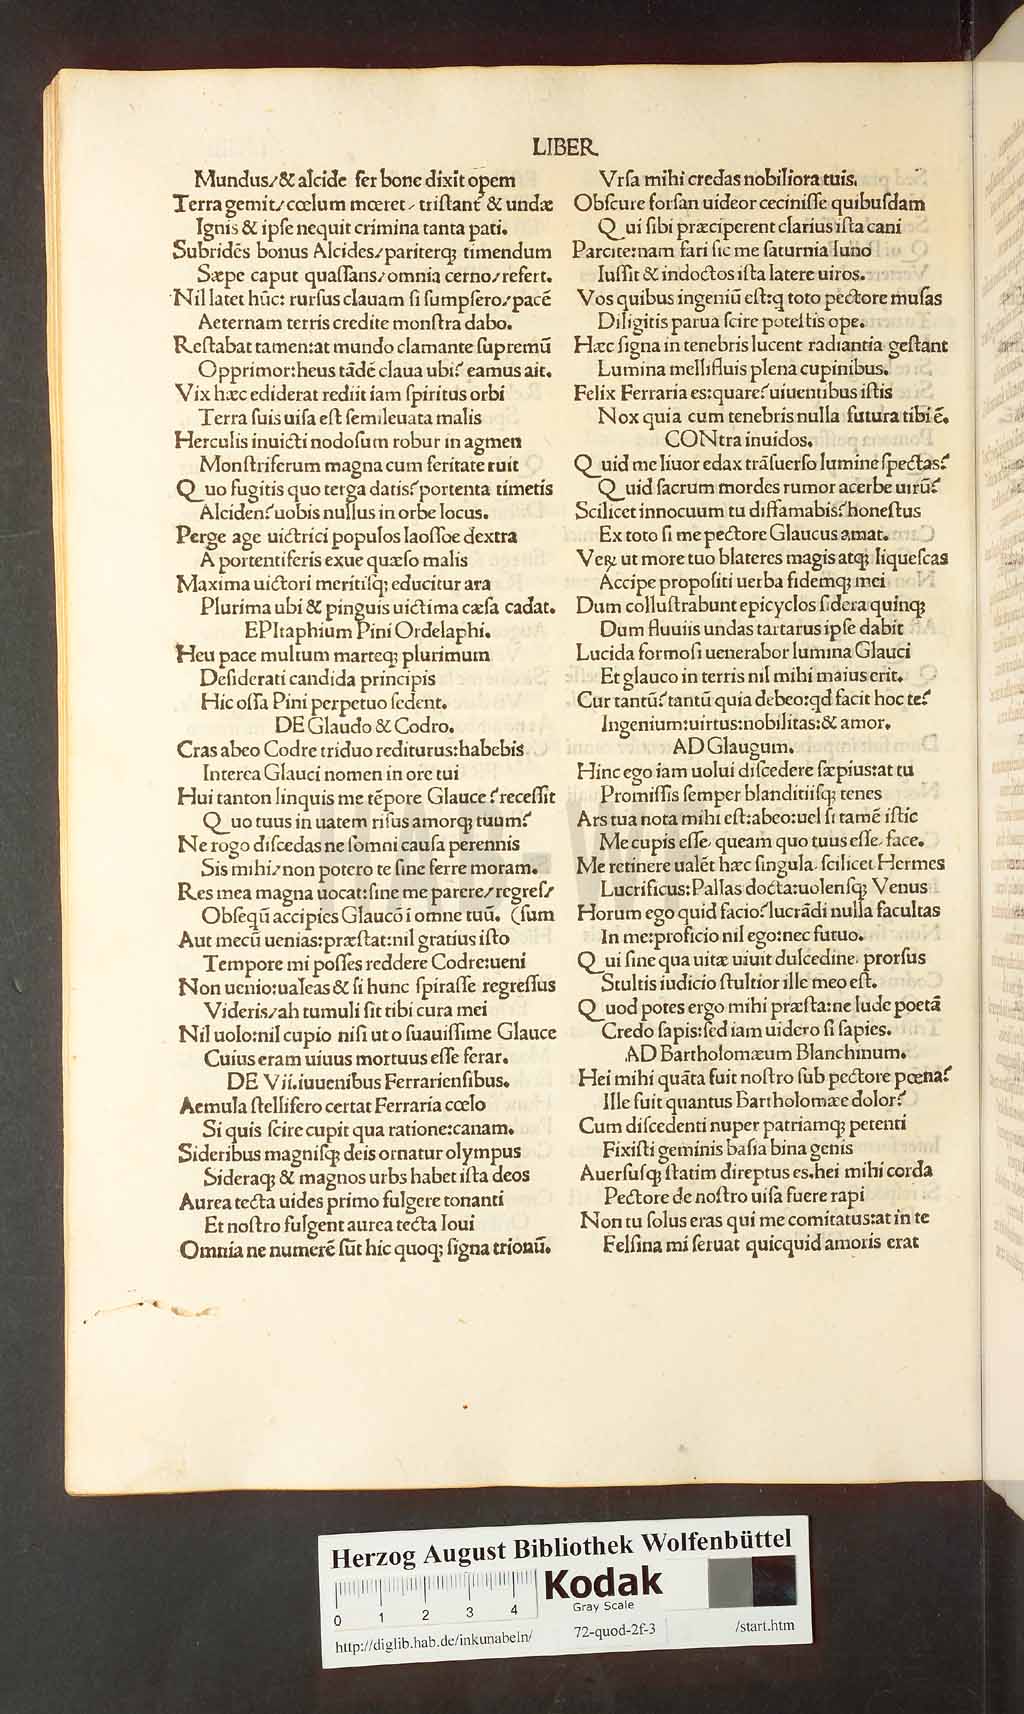 LIBER
Mundus/ & alcide fer bone dixit opem
Terra gemit/ cœlum mœret/ tristant̃ & undæ
Ignis & ipse nequit crimina tanta pati.
Subridẽs bonus Alcides/ pariterq; timendum
Sæpe caput quassans/ omnia cerno/ refert.
Nil latet hũc: rursus clauam si sumpsero/ pacẽ
Aeternam terris credite monstra dabo.
Restabat tamen: at mundo clamante supremũ
Opprimor: heus tãdẽ claua ubi? eamus ait.
Vix hæc ediderat rediit iam spiritus orbi
Terra suis uisa est semileuata malis
Herculis inuicti nodosum robur in agmen
Monstriferum magna cum feritate ruit
Quo fugitis quo terga datis? portenta timetis
Alciden? uobis nullus in orbe locus.
Perge age uictrici populos laossoe dextra
A portentiferis exue quæso malis
Maxima uictori meritisq; educitur ara
Plurima ubi & pinguis uictima cæsa cadat.
EPItaphium Pini Ordelaphi.
Heu pace multum marteq; plurimum
Desiderati candida principis
Hic ossa Pini perpetuo sedent.
DE Glaudo & Codro.
Cras abeo Codre triduo rediturus: habebis
Interea Glauci nomen in ore tui
Hui tanton linquis me tẽpore Glauce? recessit
Quo tuus in uatem risus amorq; tuum?
Ne rogo discedas ne somni causa perennis
Sis mihi/ non potero te sine ferre moram.
Res mea magna uocat: sine me parere/ regres/
Obseqũ accipies Glaucõ ĩ omne tuũ. (sum
Aut mecũ uenias: præstat: nil gratius isto
Tempore mi posses reddere Codre: ueni
Non uenio: ualeas & si hunc spirasse regressus
Videris/ ah tumuli sit tibi cura mei
Nil uolo: nil cupio nisi ut o suauissime Glauce
Cuius eram uiuus mortuus esse ferar.
DE Vii. iuuenibus Ferrariensibus.
Aemula stellifero certat Ferraria cœlo
Si quis scire cupit qua ratione: canam.
Sideribus magnisq; deis ornatur olympus
Sideraq; & magnos urbs habet ista deos
Aurea tecta uides primo fulgere tonanti
Et nostro fulgent aurea tecta Ioui
Omnia ne numerẽ sũt hic quoq; signa trionũ.
Vrsa mihi credas nobiliora tuis.
Obscure forsan uideor cecinisse quibusdam
Qui sibi præciperent clarius ista cani
Parcite: nam fari sic me saturnia Iuno
Iussit & indoctos ista latere uiros.
Vos quibus ingeniũ est: q toto pectore musas
Diligitis parua scire potestis ope.
Hæc signa in tenebris lucent radiantia gestant
Lumina mellifluis plena cupinibus.
Felix Ferraria es: quare? uiuentibus istis
Nox quia cum tenebris nulla futura tibi ẽ.
CONtra inuidos.
Quid me liuor edax trãsuerso lumine spectas?
Quid sacrum mordes rumor acerbe uirũ?
Scilicet innocuum tu diffamabis? honestus
Ex toto si me pectore Glaucus amat.
Veꝝ ut more tuo blateres magis atq; liquescas
Accipe propositi uerba fidemq; mei
Dum collustrabunt epicyclos sidera quinq;
Dum fluuiis undas tartarus ipse dabit
Lucida formosi uenerabor lumina Glauci
Et glauco in terris nil mihi maius erit.
Cur tantũ? tantũ quia debeo: qd facit hoc te?
Ingenium: uirtus: nobilitas: & amor.
AD Glaugum.
Hinc ego iam uolui discedere sæpius: at tu
Promissis semper blanditiisq; tenes
Ars tua nota mihi est: abeo: uel si tamẽ istic
Me cupis esse, queam quo tuus esse, face.
Me retinere ualẽt hæc singula, scilicet Hermes
Lucrificus: Pallas docta: uolensq; Venus
Horum ego quid facio? lucrãdi nulla facultas
In me: proficio nil ego: nec futuo.
Qui sine qua uitæ uiuit dulcedine, prorsus
Stultis iudicio stultior ille meo est.
Quod potes ergo mihi præsta: ne lude poetã
Credo sapis: sed iam uidero si sapies.
AD Bartholomæum Blanchinum.
Hei mihi quãta fuit nostro sub pectore pœna?
Ille fuit quantus Bartholomæe dolor?
Cum discedenti nuper patriamq; petenti
Fixisti geminis basia bina genis
Auersusq; statim direptus es. hei mihi corda
Pectore de nostro uisa fuere rapi
Non tu solus eras qui me comitatus: at in te
Felsina mi seruat quicquid amoris erat
HAB-WF
Herzog August Bibliothek Wolfenbüttel
0 1 2 3 4
Kodak
Gray Scale
http://diglib.hab.de/inkunabeln/ 72-quod-2f-3 /start.htm